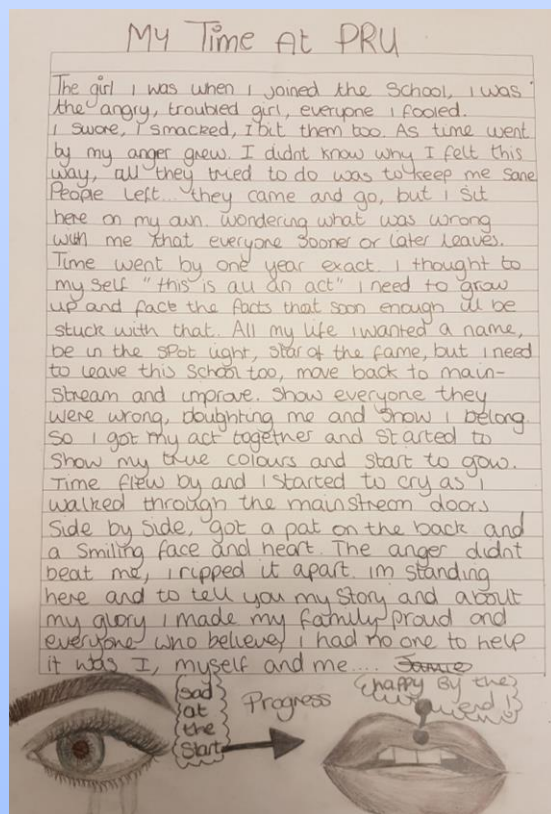 My Time At PRU
The girl I was when I joined the School, I was
the angry, troubled girl, everyone I fooled.
I swore, I smacked, I bit them too. As time went
by my anger grew. I didnt know why I felt this
way, all they tried to do was to keep me sane
People left... they came and go, but I sit
here on my own. wondering what was wrong
with me that everyone sooner or later leaves.
Time went by one year exact. I thought to
my self "this is all an act" I need to grow
up and face the facts that soon enough ill be
stuck with that. All my life I wanted a name,
be in the spot light, star of the fame, but I need
to leave this school too, move back to main-
stream and improve. Show everyone they
were wrong, doughting me and show I belong.
So I got my act together and started to
show my true colours and start to gow.
Time flew by and I started to cry as I
walked through the mainstream doors
Side by Side, got a pat on the back and
a smiling face and heart. The anger didnt
beat me, I ripped it apart. im standing
here and to tell you my story and about
my glory I made my family proud and
everyone who believe, I had no one to help
it was I, myself and me....
sad
at
the
start
Progress
happy By the
end!